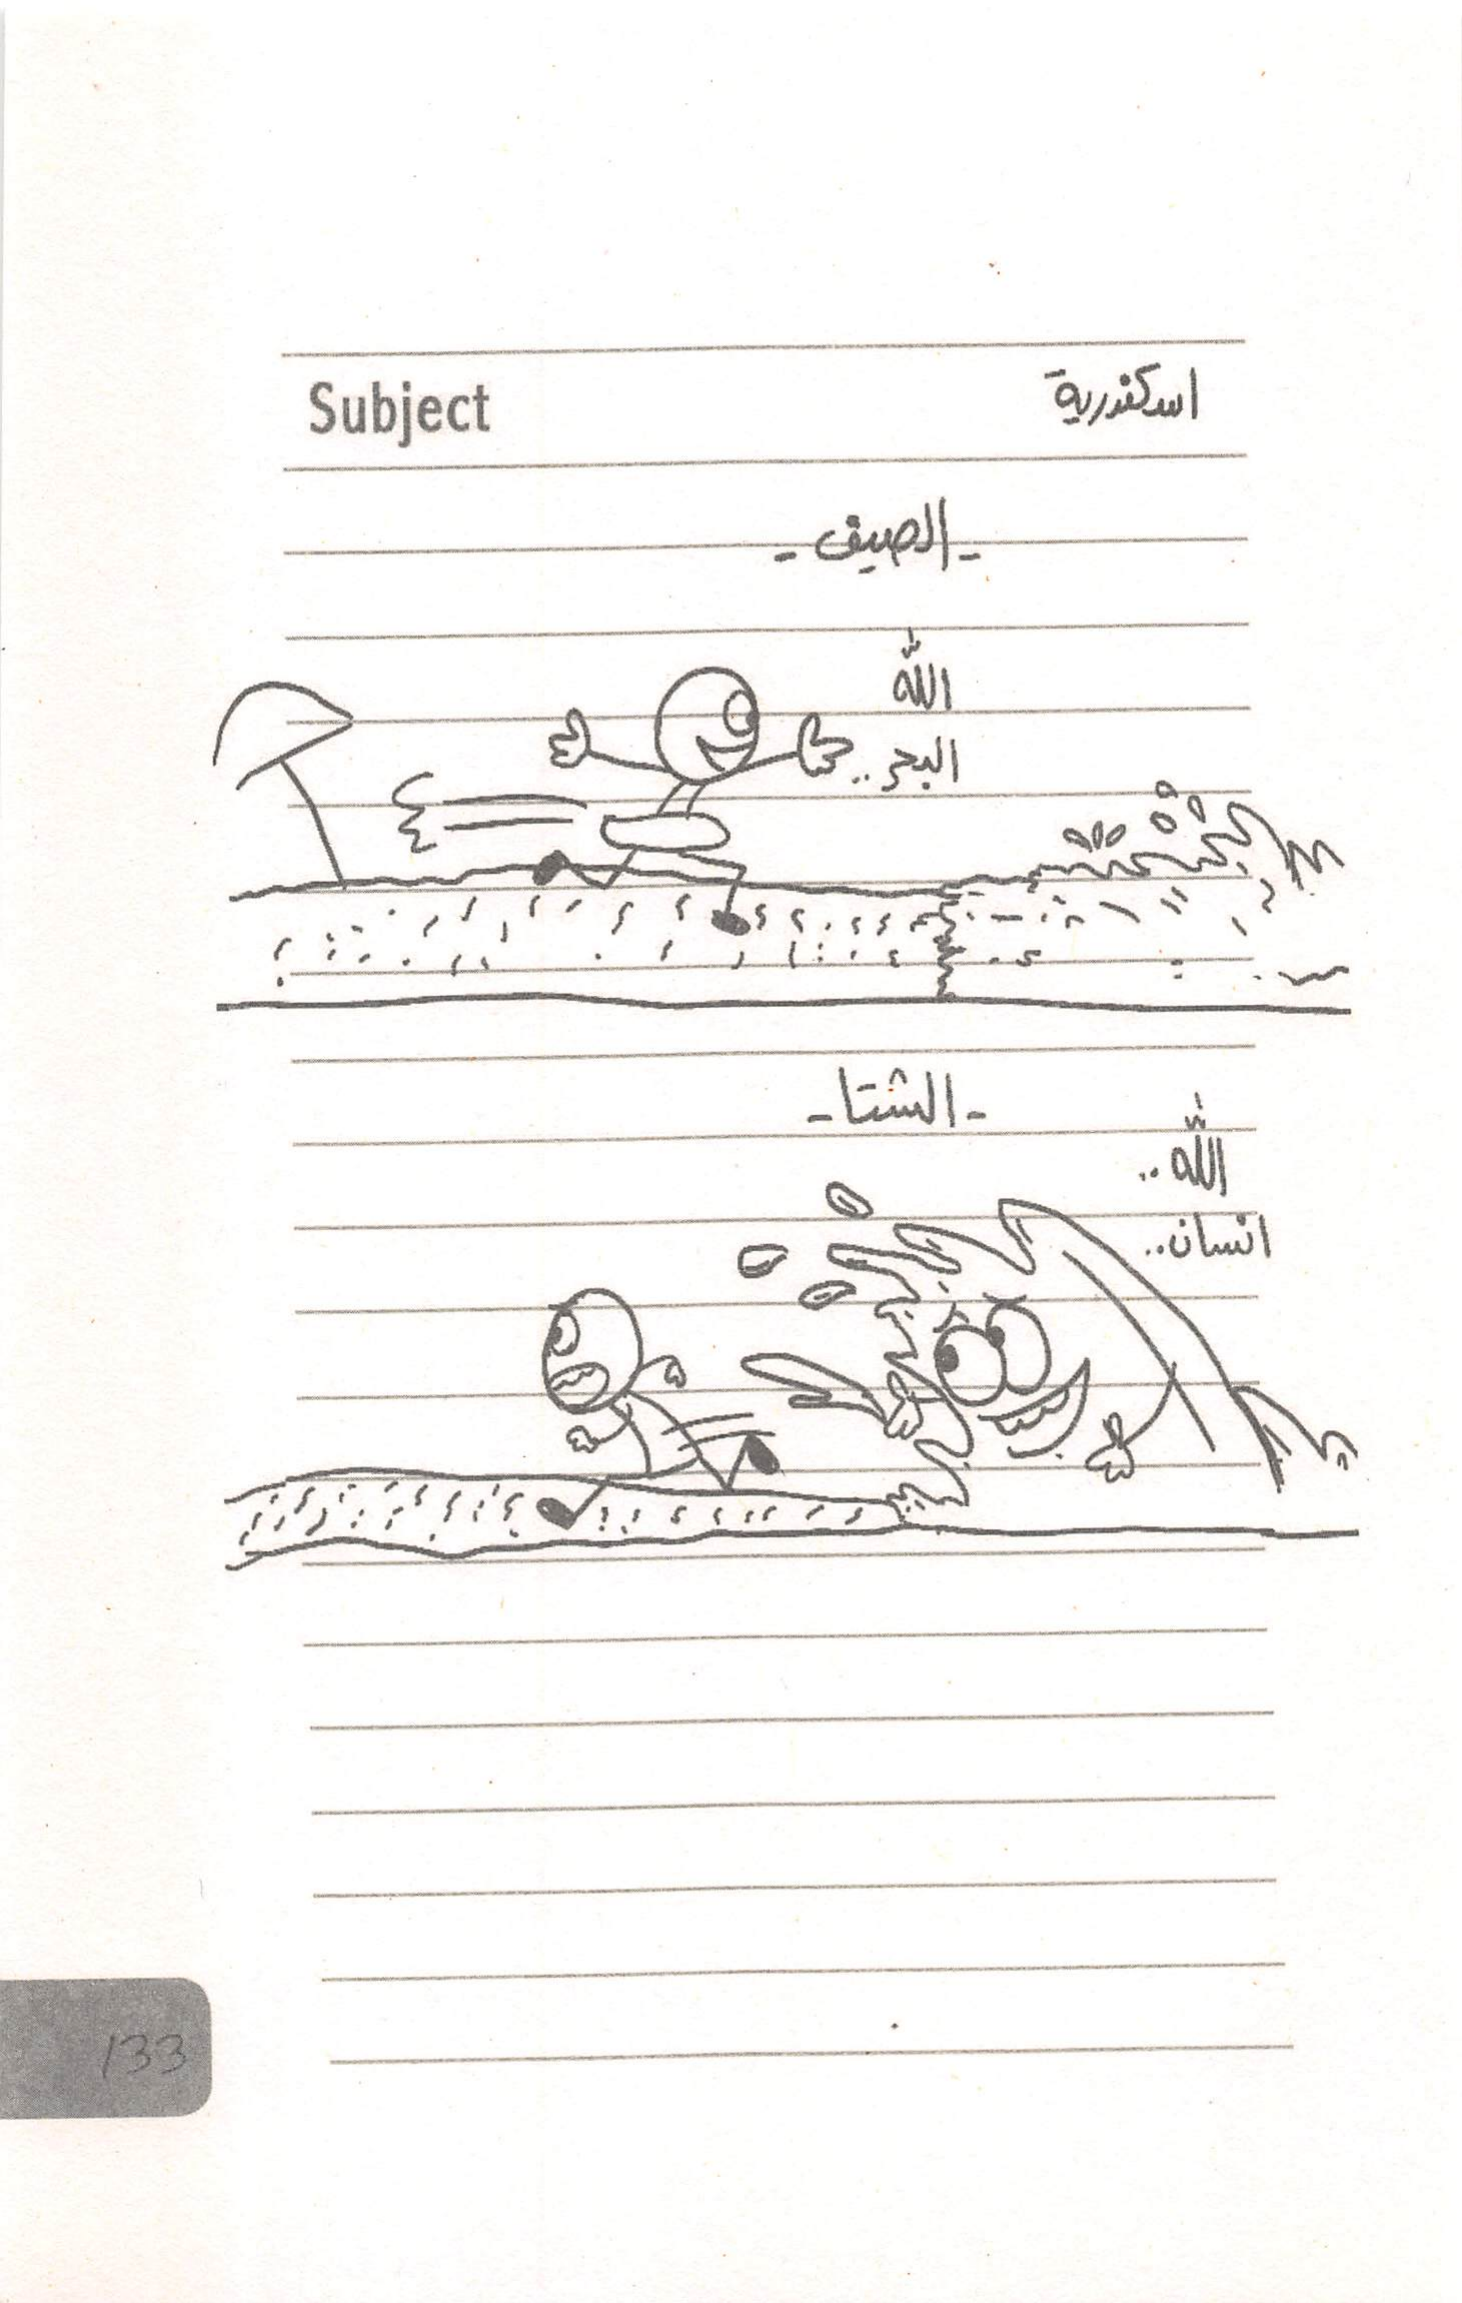 Subject
اسكندرية
- الصيف -
الله
البحر..
- الشتا -
الله..
انسان..
133